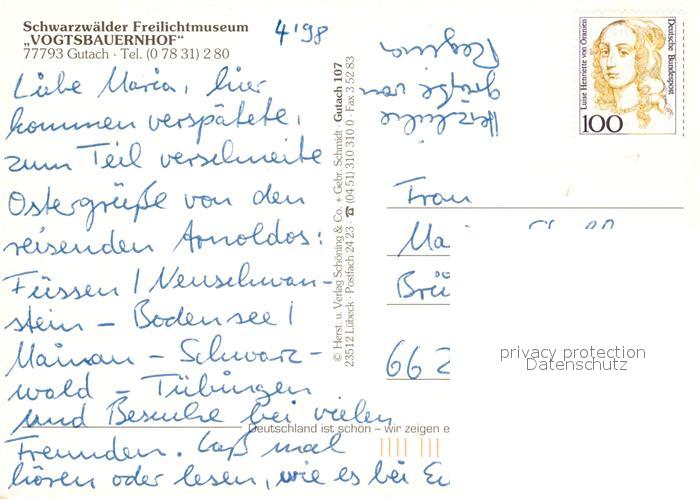 Schwarzwälder Freilichtmuseum
„VOGTSBAUERNHOF“
77793 Gutach · Tel. (0 78 31) 2 80
4'98
Liebe Maria, hier
kommen verspätete,
zum Teil verschneite
Ostergrüße von den
reisenden Arnoldos:
Füssen / Neuschwan-
stein – Bodensee /
Mainau – Schwarz-
wald – Tübingen
und Besuche bei vielen
Freunden. Laß mal
hören oder lesen, wie es bei
Deutschland ist schön – wir zeigen
Herzliche
Grüße von
Regina
© Herst. u. Verlag Schöning & Co. + Gebr. Schmidt · Gutach 107
23512 Lübeck · Postfach 24 23 · ☎ (04 51) 310 310 0 · Fax 3 52 83
Luise Henriette von Oranien
Deutsche Bundespost
100
Frau
Ma
Brü
66
privacy protection
Datenschutz